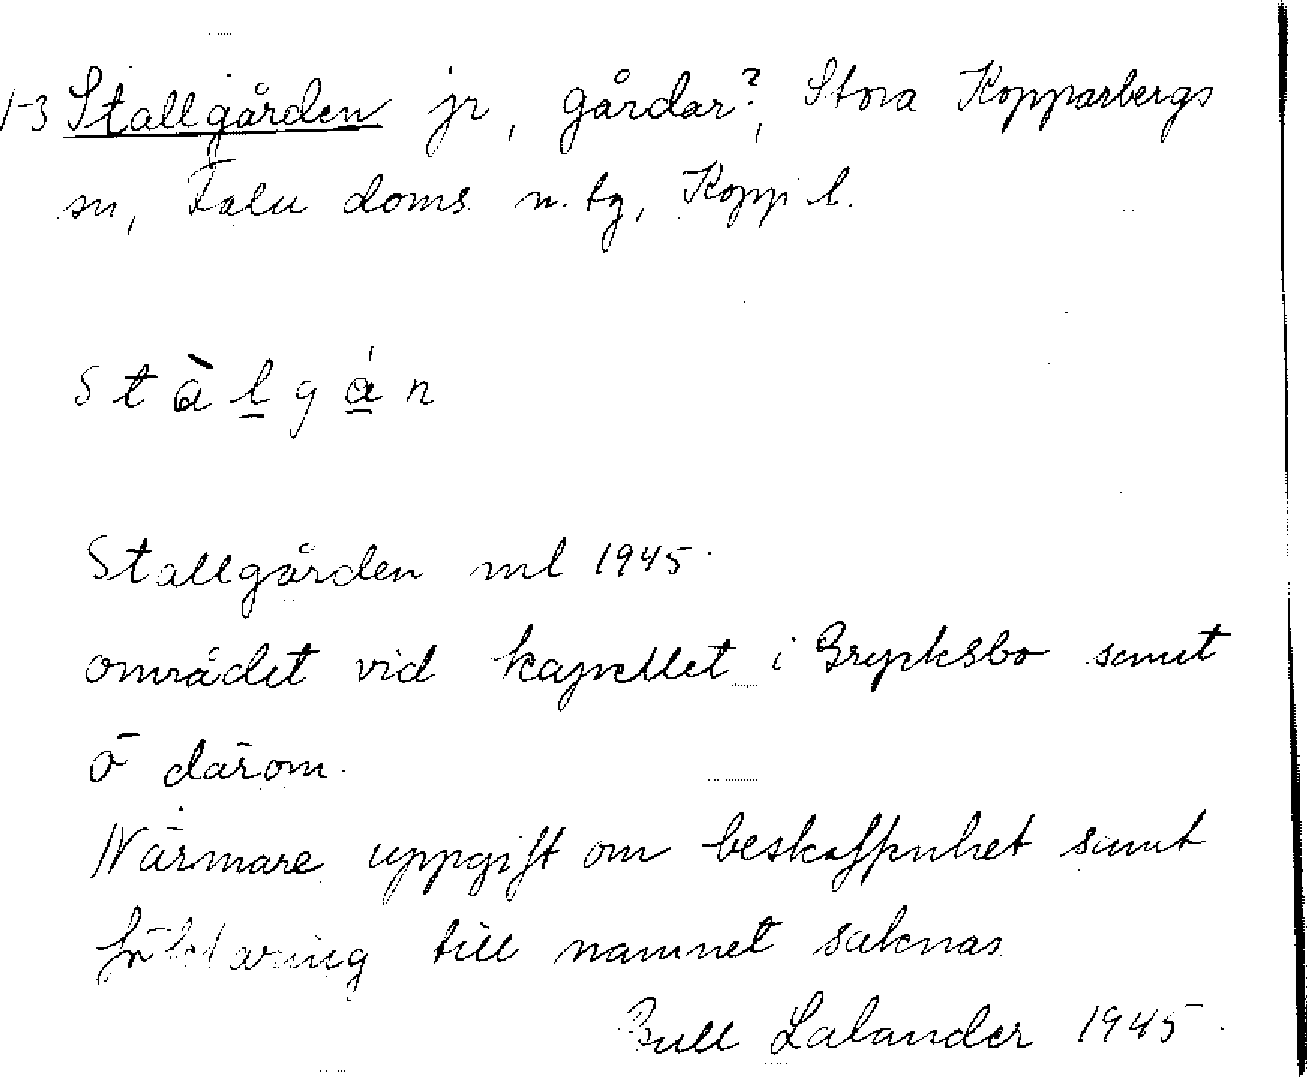 1-3 Stallgården jr, gårdar?, Stora Kopparbergs
sn, Falu doms. n. tg, Kopp. l.
stàlgán
Stallgården ml 1945.
området vid kapellet i Grycksbo samt
ö därom.
Närmare uppgift om beskaffenhet samt
förklaring till namnet saknas
Gull Lalander 1945.